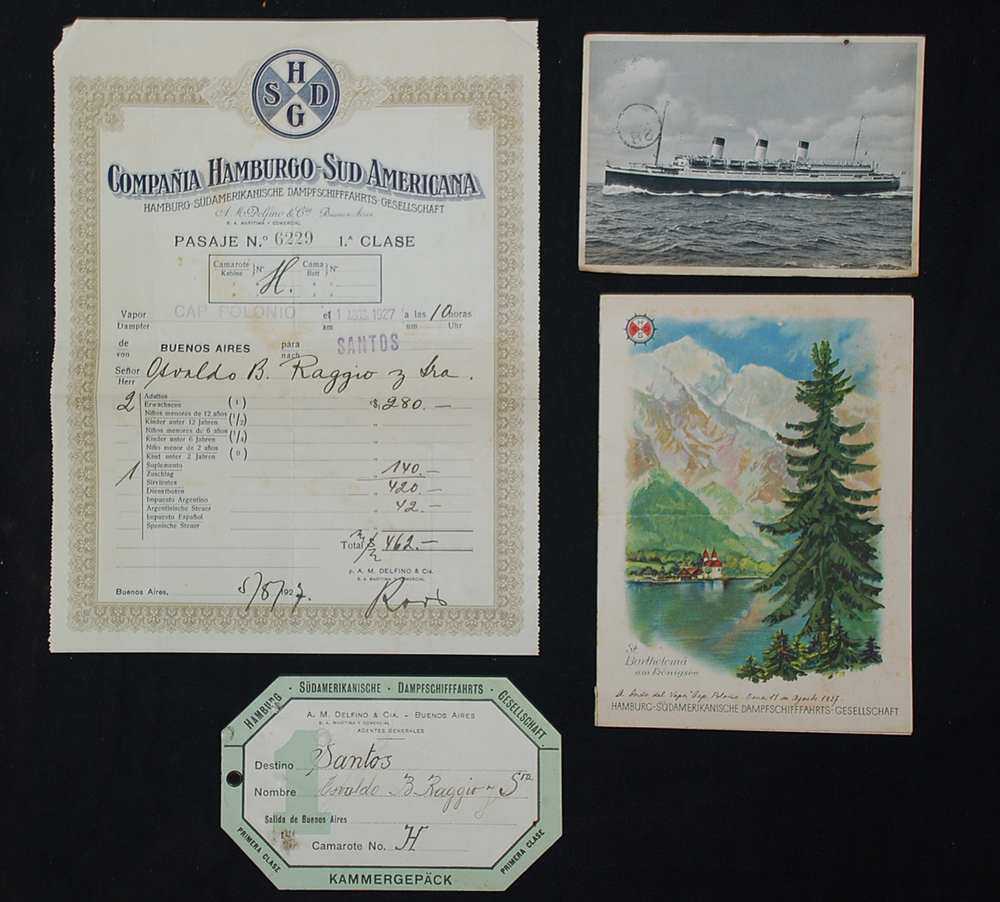 H
S D
G
COMPAÑIA HAMBURGO-SUD AMERICANA
HAMBURG-SÜDAMERIKANISCHE DAMPFSCHIFFFAHRTS-GESELLSCHAFT
A. M. Delfino & Cía Buenos Aires
S. A. MARITIMA Y COMERCIAL
PASAJE N.º 6229 1.ª CLASE
Camarote Nº H. Cama Nº
Kabine Bett
Vapor CAP POLONIO el 1 AGOS. 1927 a las 10 horas
Dampfer am um Uhr
de BUENOS AIRES para SANTOS
von nach
Señor Osvaldo B. Raggio y Sra.
Herr
2 Adultos
Erwachsene (1) $ 280.—
Niños menores de 12 años
Kinder unter 12 Jahren (1/2) "
Niños menores de 6 años
Kinder unter 6 Jahren (1/4) "
Niño menor de 2 años
Kind unter 2 Jahren (0) "
1 Suplemento 140.—
Zuschlag
Sirvientes 420.—
Dienstboten
Impuesto Argentino 42.—
Argentinische Steuer
Impuesto Español
Spanische Steuer
Total $ 462.—
p. A. M. DELFINO & Cía.
S. A. MARITIMA Y COMERCIAL
Buenos Aires, 5/8/1927.
H
S D
G
St.
Bartholomä
am Königsee
A bordo del Vapor Cap. Polonio. 11 de Agosto 1927.
HAMBURG-SÜDAMERIKANISCHE DAMPFSCHIFFFAHRTS-GESELLSCHAFT
HAMBURG - SÜDAMERIKANISCHE - DAMPFSCHIFFFAHRTS - GESELLSCHAFT
A. M. DELFINO & CIA. - BUENOS AIRES
S. A. MARITIMA Y COMERCIAL
AGENTES GENERALES
1
Destino Santos
Nombre Osvaldo B Raggio y Sra
Salida de Buenos Aires
Camarote No. H
PRIMERA CLASE
PRIMERA CLASE
KAMMERGEPÄCK